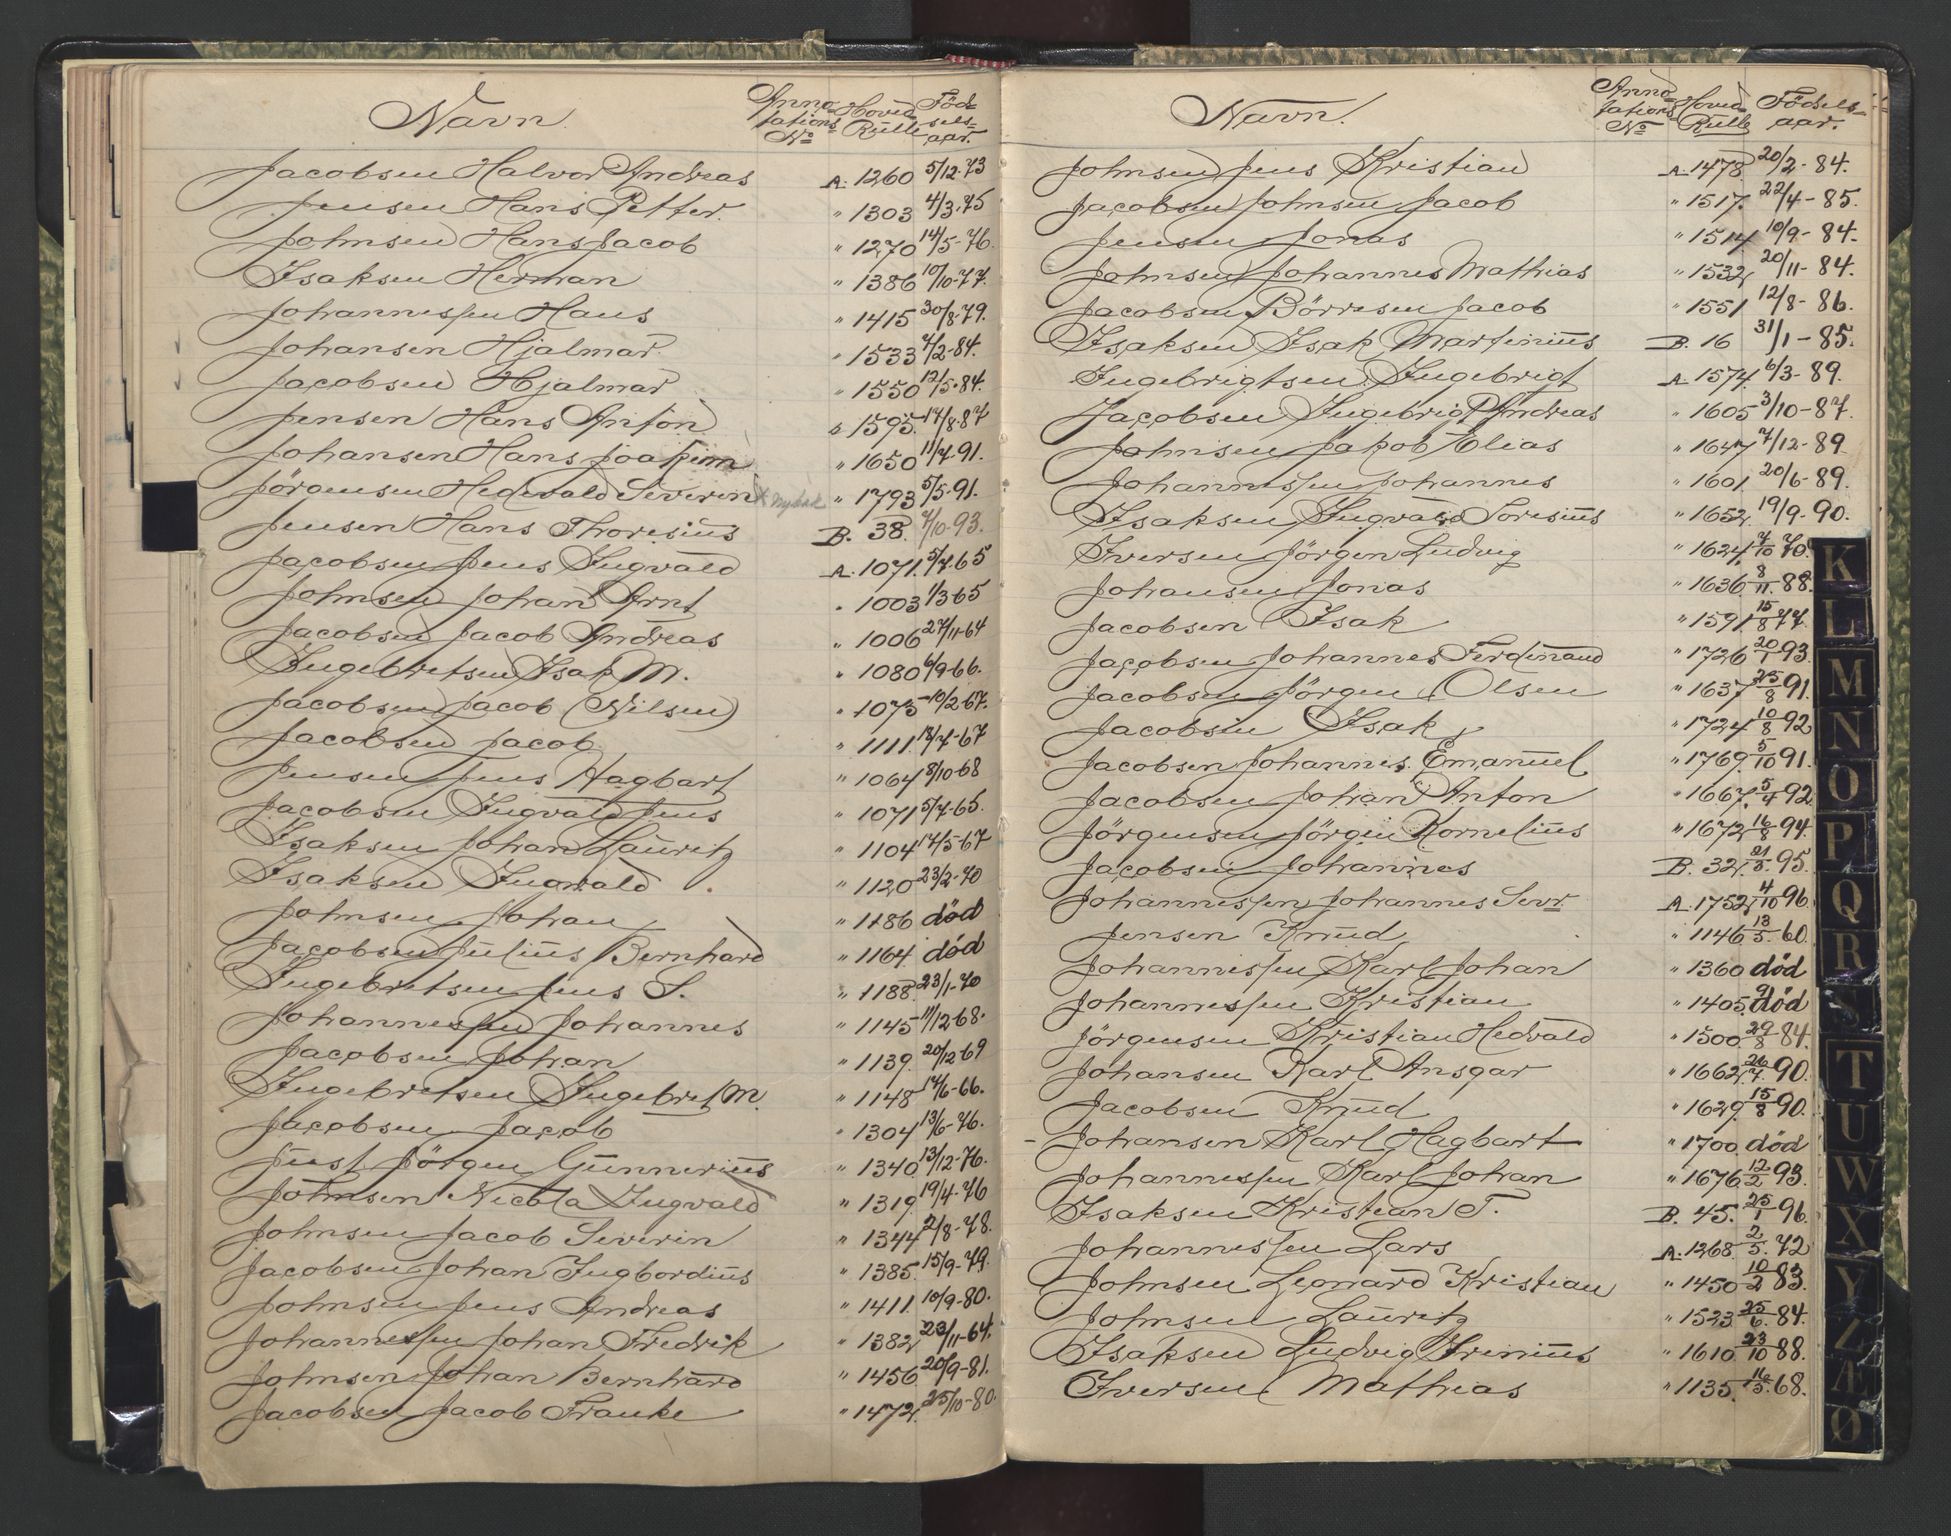 Navn. Anno- tations No Hoved Rulle Föd- sels- aar.
Jacobsen Halvor Andreas A. 1260 5/12-73
Jensen Hans Petter. " 1303 4/3-75
Johnsen Hans Jacob " 1270 14/5-76.
Isaksen Herman " 1386 10/10-77.
Johannessen Hans " 1415 30/8-79.
Johansen Hjalmar " 1533 7/2-84.
Jacobsen Hjalmar " 1550 12/5-84.
Jensen Hans Anton " 1595. 17/8-87
Johansen Hans Joakim " 1650 11/7-91.
Jörgensen Hedevald Severin " 1793 5/5-91.
Jensen Hans Thoresius B. 38. 7/10-93.
Jacobsen Jens Ingvald A. 1071. 5/7-65
Johnsen Johan Arnt " 1003 1/3-65
Jacobsen Jacob Andreas " 1006 27/11-64
Ingebretsen Isak M. " 1080 6/9-66.
Jacobsen Jacob (Nilsen) " 1075 10/2-67.
Jacobsen Jacob " 1111. 13/7-67
Jensen Jens Hagbart " 1064 8/10-68
Jacobsen Ingvald Jens " 1071 5/7-65.
Isaksen Johan Lauritz " 1104 17/5-67
Isaksen Ingvald. " 1120 23/2-70
Johnsen Johan " 1186 död
Jacobsen Julius Bernhard " 1164. död
Ingebretsen Jens S. " 1188. 23/1-70
Johannessen Johannes " 1145 11/12-68.
Jacobsen Johan " 1139. 20/12-69
Ingebretsen Ingebret M. " 1148 17/6-66.
Jacobsen Jacob " 1304 13/6-76.
Just Jörgen Gunnerius " 1340. 13/12-76.
Johnsen Nicola Ingvald " 1319. 19/4-76
Johnsen Jacob Severin " 1344 2/8-78.
Jacobsen Johan Ingbordius " 1385. 15/9-79.
Johnsen Jens Andreas " 1411. 10/9-80.
Johannessen Johan Fredrik " 1382 23/11-64.
Johnsen Johan Bernhard " 1456. 20/9-81.
Jacobsen Jacob Franke " 1472. 25/10-80.
Navn. Anno- tations No Hoved Rulle Födsels- aar.
Johnsen Jens Kristian A. 1478 20/2-84.
Jacobsen Johnsen Jacob " 1517. 22/4-85.
Jensen Jonas " 1514 10/9-84.
Johnsen Johannes Mathias " 1532 20/11-84.
Jacobsen Börresen Jacob " 1551 12/8-86.
Isaksen Isak Martinius B. 16 31/1-85.
Ingebrigtsen Ingebrigt A. 1574. 6/3-89.
Jacobsen Ingebrigt Andreas " 1605 3/10-87.
Johnsen Jakob Elias " 1647 7/12-89.
Johannessen Johannes " 1601. 20/6-89.
Isaksen Ingvald Toresius " 1652. 19/9-90.
Iversen Jörgen Ludvig " 1624. 7/10 70.
Johansen Jonas " 1636. 8/11 88.
Jacobsen Isak " 1591. 15/8 77.
Jacobsen Johannes Ferdinand " 1726 20/1 93.
Jacobsen Jörgen Olsen " 1637 25/8 91.
Jacobsen Isak " 1724 10/8 92
Jacobsen Johannes Emanuel " 1769. 5/10 91.
Jacobsen Johan Anton " 1667. 5/4 92
Jörgensen Jörgen Kornelius " 1672. 16/8 94.
Jacobsen Johannes B. 32. 21/5 95.
Johannessen Johannes Sevr. A. 1752. 4/10 96.
Jensen Knud " 1146 13/5 60.
Johannessen Karl Johan " 1360 död
Johannessen Kristian " 1405. död
Jörgensen Kristian Hedvald " 1500. 29/8 84.
Johansen Karl Ansgar " 1662. 26/7 90.
Jacobsen Knud " 1629. 15/8 90.
- Johansen Karl Hagbart " 1700. död
Johannessen Karl Johan " 1676. 12/2 93.
Isaksen Kristian T. B. 45. 25/1 96.
Johannessen Lars A. 1268. 2/5 72
Johnsen Leonard Kristian " 1450 10/2 83.
Johnsen Lauritz " 1523. 25/6 84.
Isaksen Ludvig Irinius " 1610. 23/10 88.
Iversen Mathias " 1135. 16/5 68.
K
L
M
N
O
P
Q
R
S
T
U
W
X
Y
Z
Æ
Ø